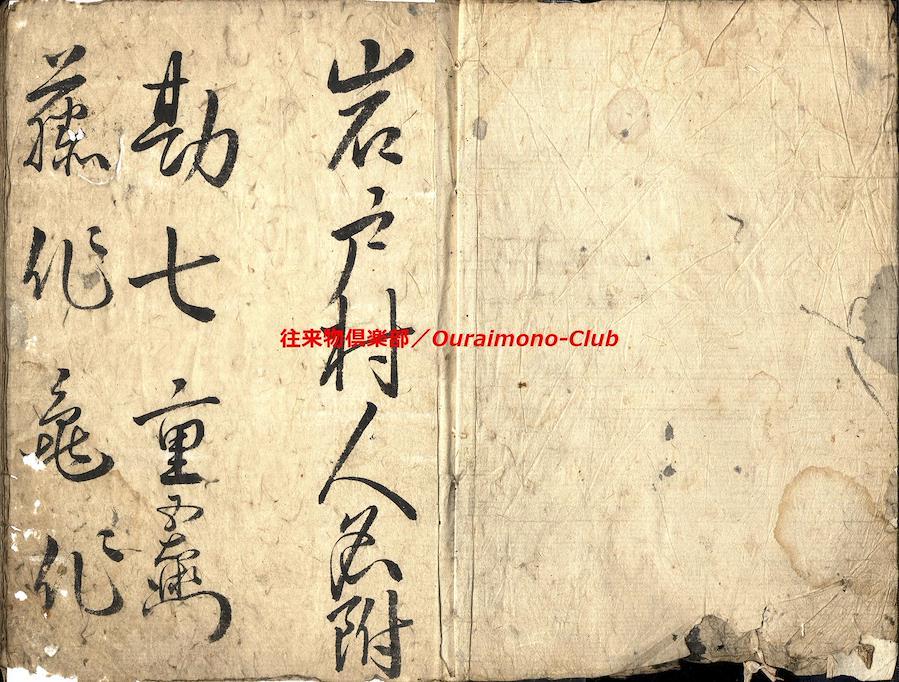 岩戸村人名附
勘七 重右衛門
藤作 亀作
往来物倶楽部／Ouraimono-Club